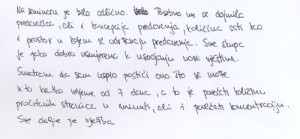 Na seminaru je bilo odlično. Posebno me se dojmila
predavačica, ali i koncepcija predavanja, količina sati kao
i prostor u kojem se održavaju predavanja. Sve skupa
je jako dobro usmjereno k usvajanju novih vještina.
Smatram da sam uspio postići ono što se može
u to kratko vrijeme od 7 dana, a to je povećati količinu
pročitanih stranica u minuti, ali i povećati koncentraciju.
Sve dalje je vježba